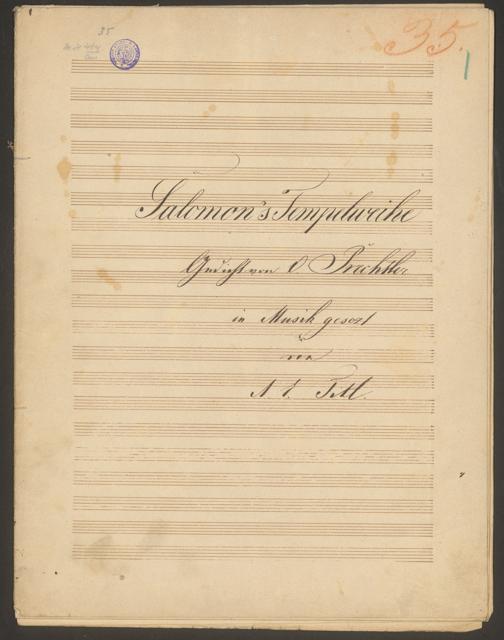 35
35.
1
Salomon's Tempelweihe
Gedicht von O. Prechtler
in Musik gesezt
von
A. E. Titl.